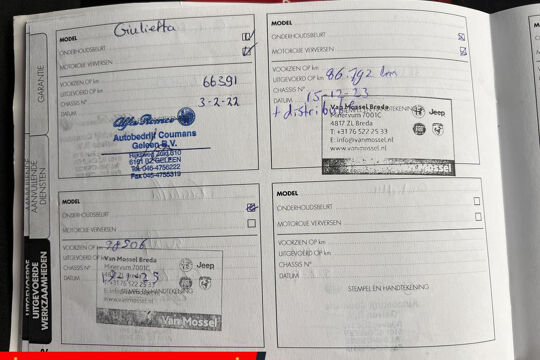 GARANTIE
AANVULLENDE
DIENSTEN
UITGEVOERDE
WERKZAAMHEDEN
MODEL Giulietta
ONDERHOUDSBEURT
MOTOROLIE VERVERSEN
VOORZIEN OP km
UITGEVOERD OP km 66391
CHASSIS N°
DATUM 3-2-22
Alfa Romeo
Autobedrijf Coumans
Geleen B.V.
Tel. 046-4756222
MODEL
ONDERHOUDSBEURT
MOTOROLIE VERVERSEN
VOORZIEN OP km
UITGEVOERD OP km 86.792 km
CHASSIS N°
DATUM 15-12-23
+ distributie
Van Mossel Breda
Minervum 7001C
4817 ZL Breda
T: +31 76 522 25 33
E: info@vanmossel.nl
www.vanmossel.nl
Jeep
Van Mossel
MODEL
ONDERHOUDSBEURT
MOTOROLIE VERVERSEN
VOORZIEN OP km 98506
UITGEVOERD OP km
CHASSIS N°
DATUM
Van Mossel Breda
Minervum 7001C
Jeep
Van Mossel
MODEL
ONDERHOUDSBEURT
MOTOROLIE VERVERSEN
VOORZIEN OP km
UITGEVOERD OP km
CHASSIS N°
DATUM
STEMPEL EN HANDTEKENING